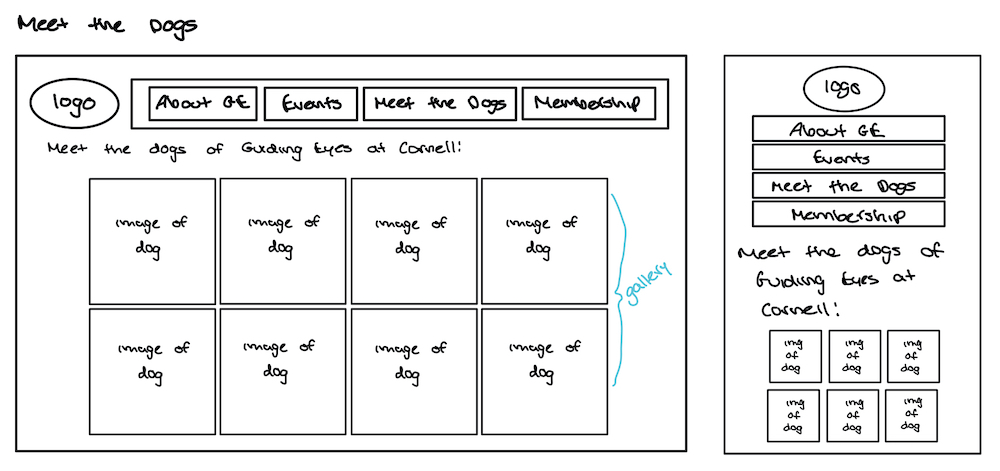 Meet the Dogs
logo
About GE
Events
Meet the Dogs
Membership
Meet the dogs of Guiding Eyes at Cornell:
image of
dog
image of
dog
image of
dog
image of
dog
image of
dog
image of
dog
image of
dog
image of
dog
gallery
logo
About GE
Events
Meet the Dogs
Membership
Meet the dogs of
Guiding Eyes at
Cornell:
img
of
dog
img
of
dog
img
of
dog
img
of
dog
img
of
dog
img
of
dog